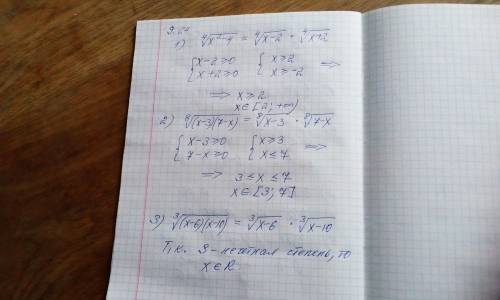 9.27
1) ∜(x²-4) = ∜(x-2) · ∜(x+2)
{x-2≥0 {x≥2
{x+2≥0 {x≥-2 ⟹
⟹ x≥2
x∈[2; +∞)
2) ⁸√((x-3)(7-x)) = ⁸√(x-3) · ⁸√(7-x)
{x-3≥0 {x≥3
{7-x≥0 {x≤7 ⟹
⟹ 3≤x≤7
x∈[3; 7]
3) ³√((x-6)(x-10)) = ³√(x-6) · ³√(x-10)
Т.к. 3-нечетная степень, то
x∈R